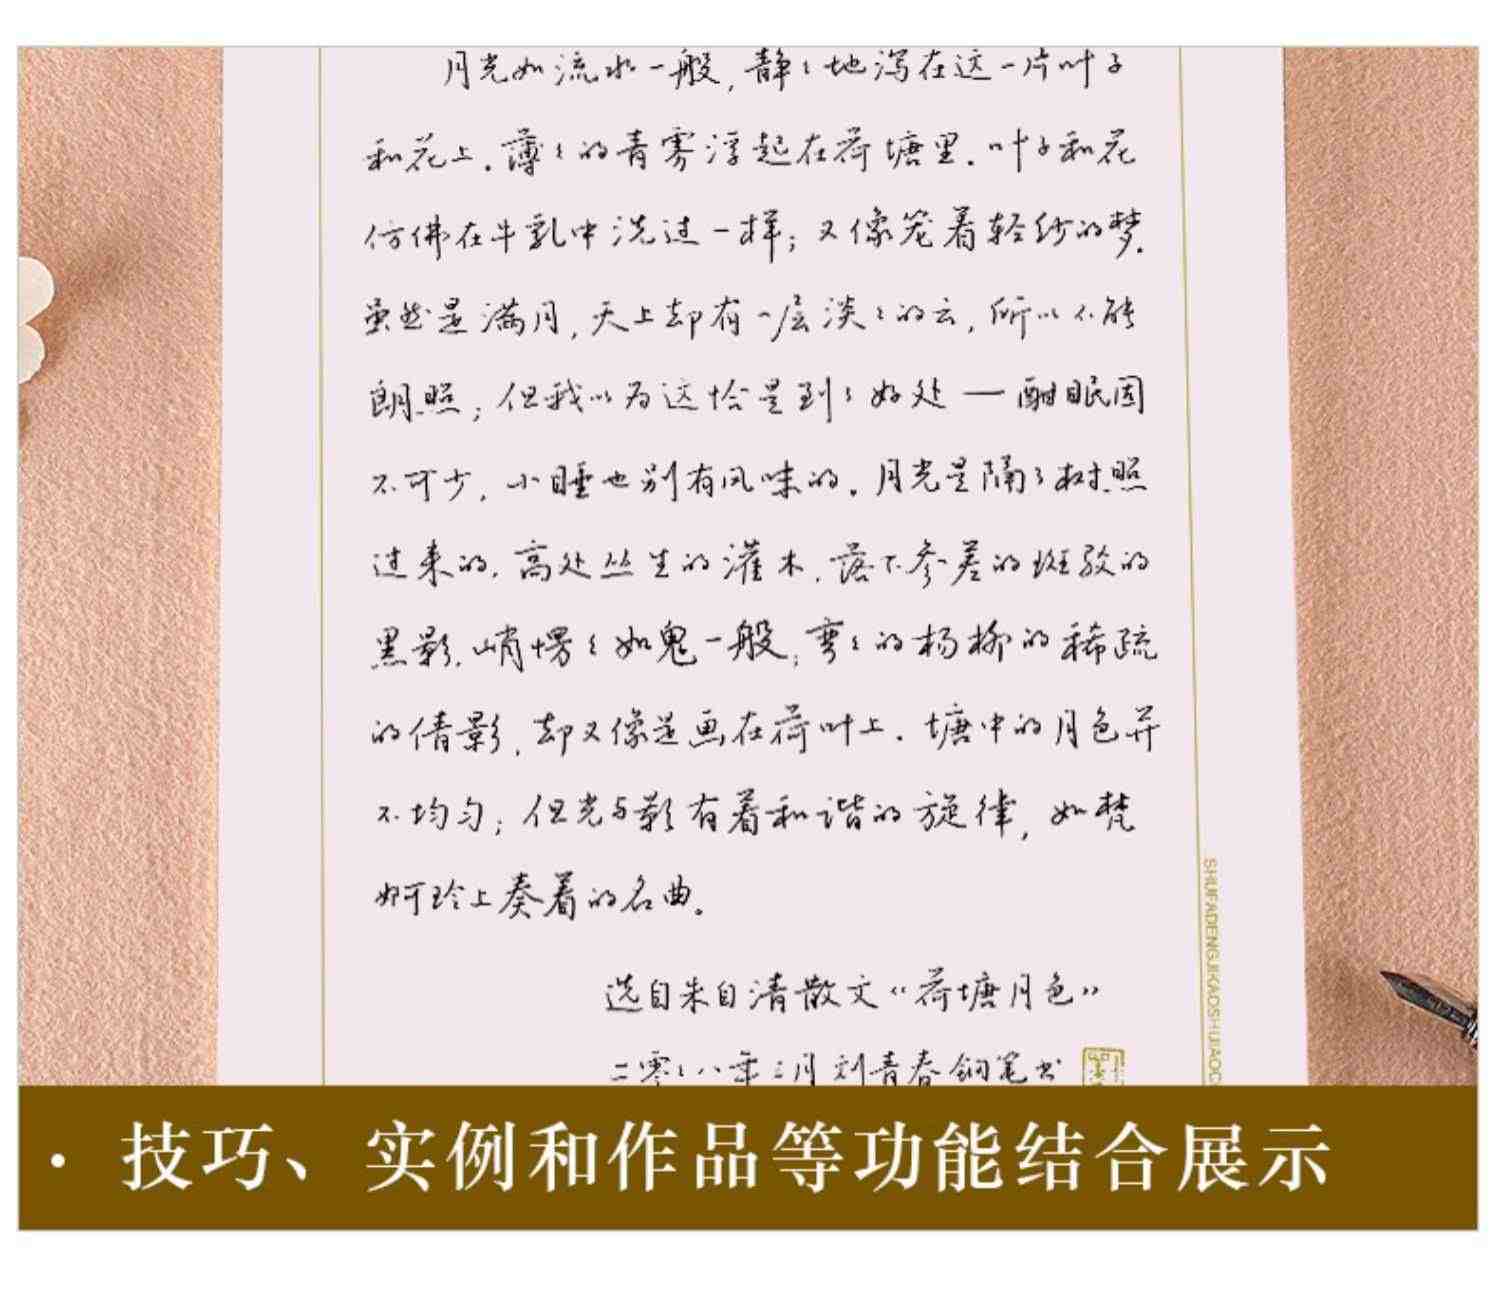 月光如流水一般,静々地泻在这一片叶子
和花上.薄々的青雾浮起在荷塘里.叶子和花
仿佛在牛乳中洗过一样;又像笼着轻纱的梦.
虽然是满月,天上却有一层淡々的云,所以不能
朗照;但我以为这恰是到了好处—酣眠固
不可少,小睡也别有风味的.月光是隔了树照
过来的.高处丛生的灌木.落下参差的斑驳的
黑影.峭愣々如鬼一般;弯々的杨柳的稀疏
的倩影,却又像是画在荷叶上.塘中的月色并
不均匀;但光与影有着和谐的旋律,如梵
婀玲上奏着的名曲。
选自朱自清散文《荷塘月色》
二零一八年二月刘青春钢笔书
SHUFADENGJIKAOSHIJIAOC
· 技巧、实例和作品等功能结合展示